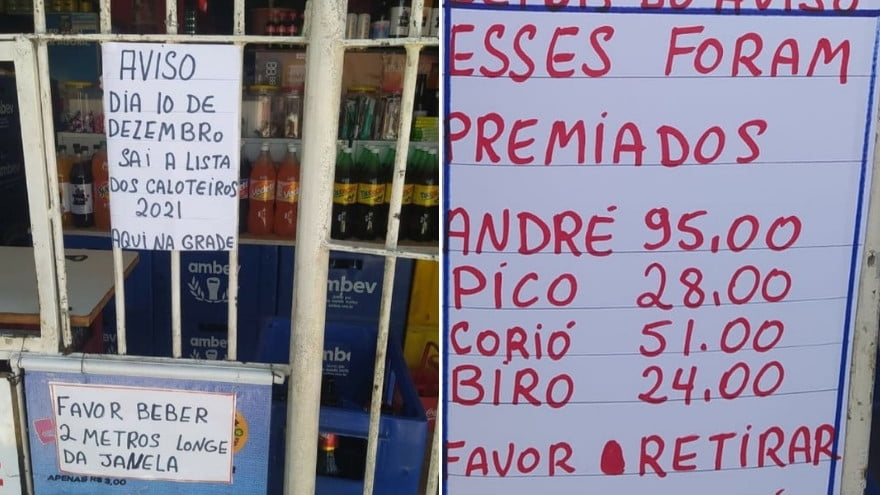 AVISO
DIA 10 DE
DEZEMBRO
SAI A LISTA
DOS CALOTEIROS
2021
AQUI NA GRADE
ambev
ambev
ambev
FAVOR BEBER
2 METROS LONGE
DA JANELA
APENAS R$ 3,00
DEPOIS DO AVISO
ESSES FORAM
PREMIADOS
ANDRÉ 95,00
PICO 28,00
CORIÓ 51.00
BIRO 24,00
FAVOR RETIRAR